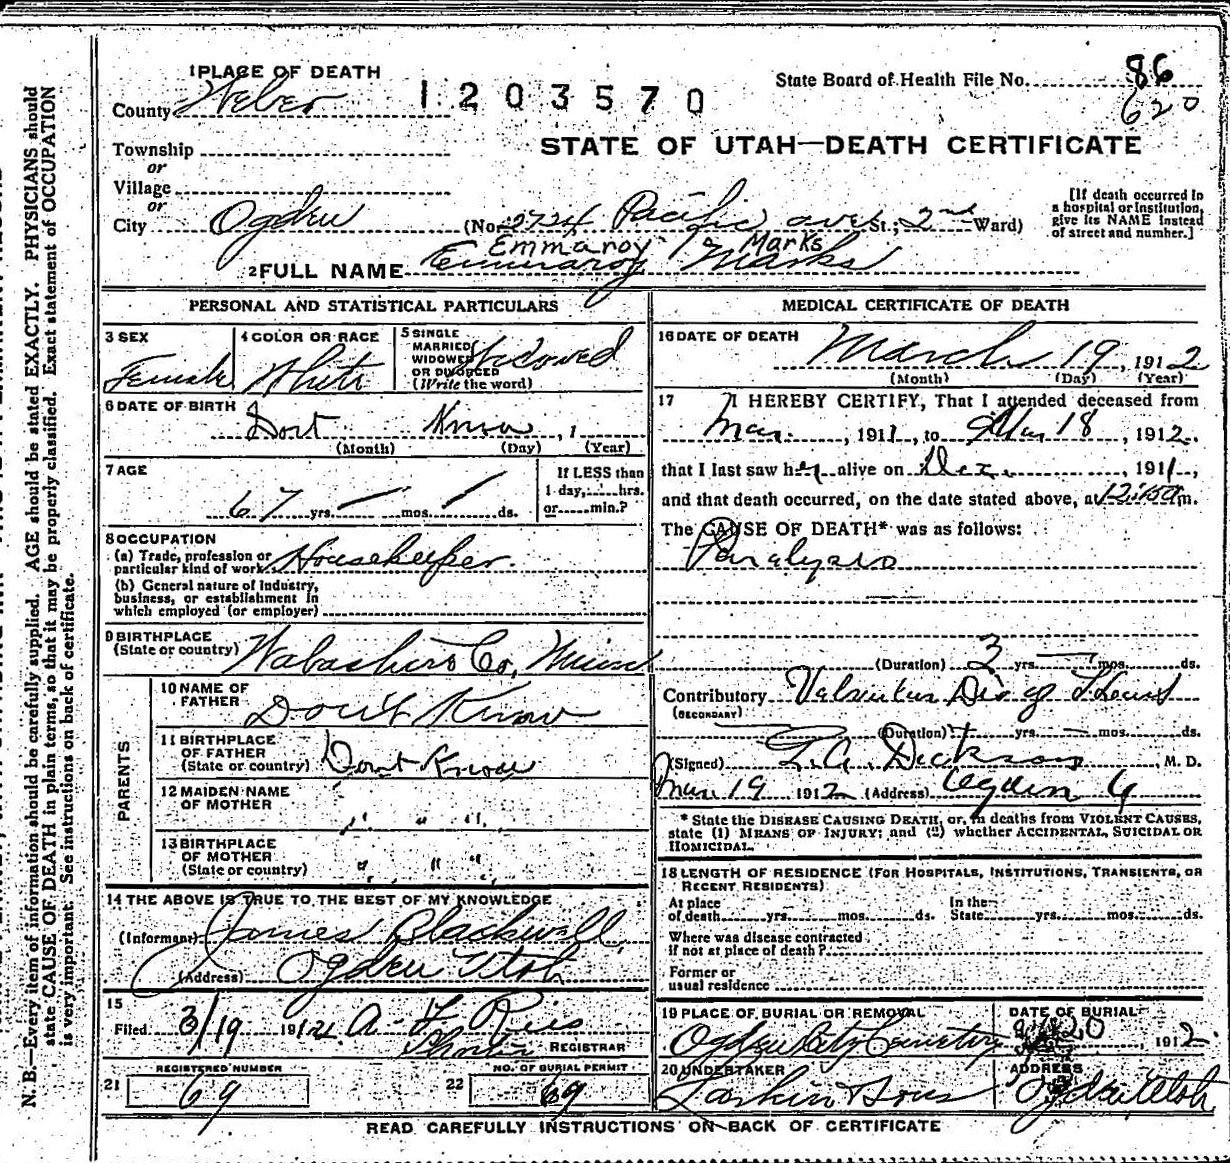 1 PLACE OF DEATH
County Weber
1203570
State Board of Health File No. 86
620
STATE OF UTAH—DEATH CERTIFICATE
Township
or
Village
or
City Ogden (No. 2724 Pacific ave St.; 2nd Ward)
[If death occurred in a hospital or institution, give its NAME instead of street and number.]
Emmaroy Marks
2 FULL NAME Emmaroy Marks
PERSONAL AND STATISTICAL PARTICULARS
3 SEX
Female
4 COLOR OR RACE
White
5 SINGLE
MARRIED
WIDOWED
OR DIVORCED
(Write the word)
Widowed
6 DATE OF BIRTH
Dont Know, 1
(Month) (Day) (Year)
7 AGE
67 yrs. mos. ds.
If LESS than
1 day, hrs.
or min.?
8 OCCUPATION
(a) Trade, profession or
particular kind of work Housekeeper.
(b) General nature of Industry,
business, or establishment in
which employed (or employer)
9 BIRTHPLACE
(State or country)
Co,
PARENTS
10 NAME OF
FATHER
Don't Know
11 BIRTHPLACE
OF FATHER
(State or country) Dont Know
12 MAIDEN NAME
OF MOTHER
" " "
13 BIRTHPLACE
OF MOTHER
(State or country) " " "
14 THE ABOVE IS TRUE TO THE BEST OF MY KNOWLEDGE
(Informant) James Blackwell,
(Address) Ogden Utah
15
Filed 3/19 1912
REGISTRAR
REGISTERED NUMBER
21 69
NO. OF BURIAL PERMIT
22 69
MEDICAL CERTIFICATE OF DEATH
16 DATE OF DEATH
March 19, 1912.
(Month) (Day) (Year)
17 I HEREBY CERTIFY, That I attended deceased from
Mar. , 1911, to Mar 18, 1912.
that I last saw her alive on Dec. , 1911,
and that death occurred, on the date stated above, at m.
The CAUSE OF DEATH* was as follows:
Paralysis
(Duration) 3 yrs. mos. ds.
Contributory Valvular Dis of Heart
(SECONDARY)
(Duration) yrs. mos. ds.
(Signed) Dickson, M. D.
Mar 19 1912 (Address) Ogden U
* State the DISEASE CAUSING DEATH, or, in deaths from VIOLENT CAUSES,
state (1) MEANS OF INJURY; and (2) whether ACCIDENTAL, SUICIDAL OR
HOMICIDAL.
18 LENGTH OF RESIDENCE (FOR HOSPITALS, INSTITUTIONS, TRANSIENTS, OR
RECENT RESIDENTS)
At place
of death yrs. mos. ds.
In the
State yrs. mos. ds.
Where was disease contracted
if not at place of death?
Former or
usual residence
19 PLACE OF BURIAL OR REMOVAL
Ogden City Cemetery
DATE OF BURIAL
20, 1912.
20 UNDERTAKER
Larkin & Sons
ADDRESS
Ogden, Utah
READ CAREFULLY INSTRUCTIONS ON BACK OF CERTIFICATE
N. B.—Every item of information should be carefully supplied. AGE should be stated EXACTLY. PHYSICIANS should
state CAUSE OF DEATH in plain terms, so that it may be properly classified. Exact statement of OCCUPATION
is very important. See instructions on back of certificate.